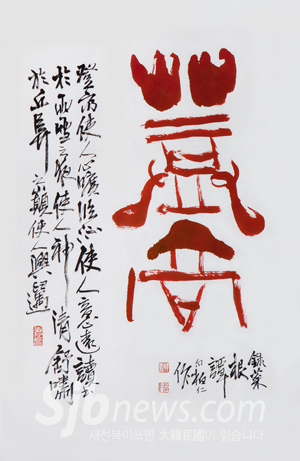 登高
登高使人心曠臨流使人意遠讀書
於雨雪之夜使人神清舒嘯
於丘阜之巔使人興邁
錄菜
根
譚
柏仁
作
SJbnews.com
새전북이쓰면 大韓民國이 읽습니다